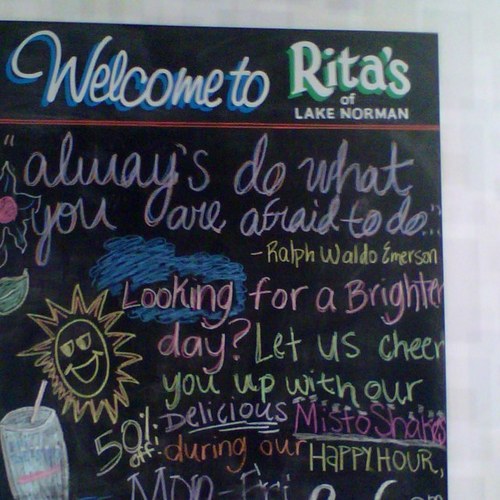 Welcome to Rita's
of
LAKE NORMAN
"alway's do what
you are afraid to do."
- Ralph Waldo Emerson
Looking for a Brighter
day? Let us cheer
you up with our
50% off! Delicious Misto Shakes
during our HAPPY HOUR,
Mon-Fri